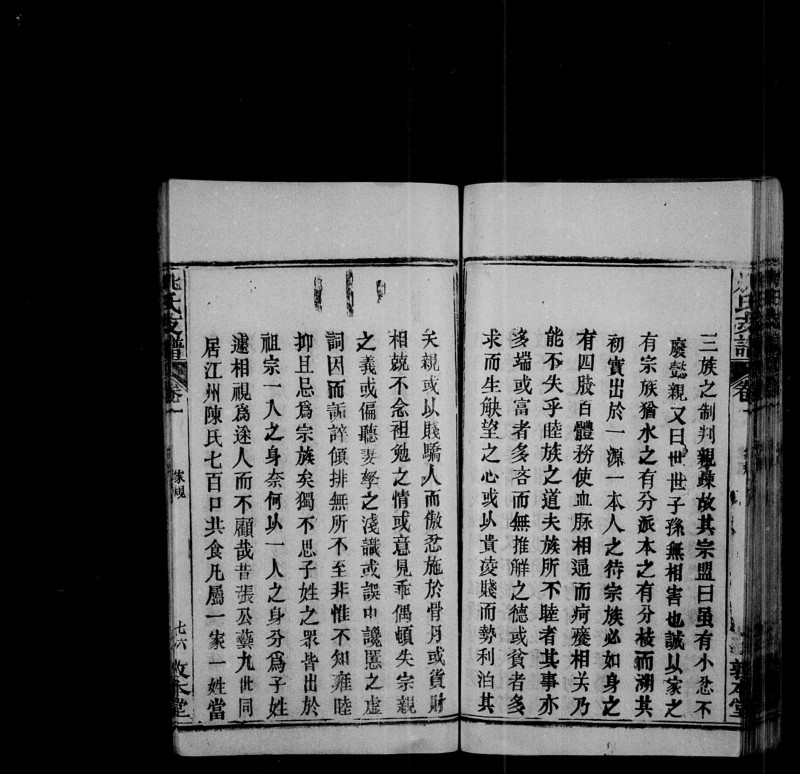 三族之制判親疎故其宗盟曰虽有小忿不
廢懿親又曰世世子孫無相害也誠以家之
有宗族猶水之有分派木之有分枝而溯其
初實出於一源一本人之待宗族必如身之
有四肢百體務使血脉相通而疴癢相关乃
能不失乎睦族之道夫族所不睦者其事亦
多端或富者多吝而無推解之德或貧者多
求而生觖望之心或以貴凌賤而勢利泊其
矣親或以賤驕人而傲忿施於骨月或貨財
相競不念袒勉之情或意見乖偶頓失宗親
之義或偏聽妻孥之淺識或誤中讒慝之虛
詞因而詬誶傾排無所不至非惟不知雍睦
抑且忌爲宗族矣獨不思子姓之眾皆出於
祖宗一人之身奈何以一人之身分爲子姓
遽相視爲途人而不顧哉昔張公藝九世同
居江州陳氏七百口共食凡屬一家一姓當
氏支譜
卷一
家規
七六
敦本堂